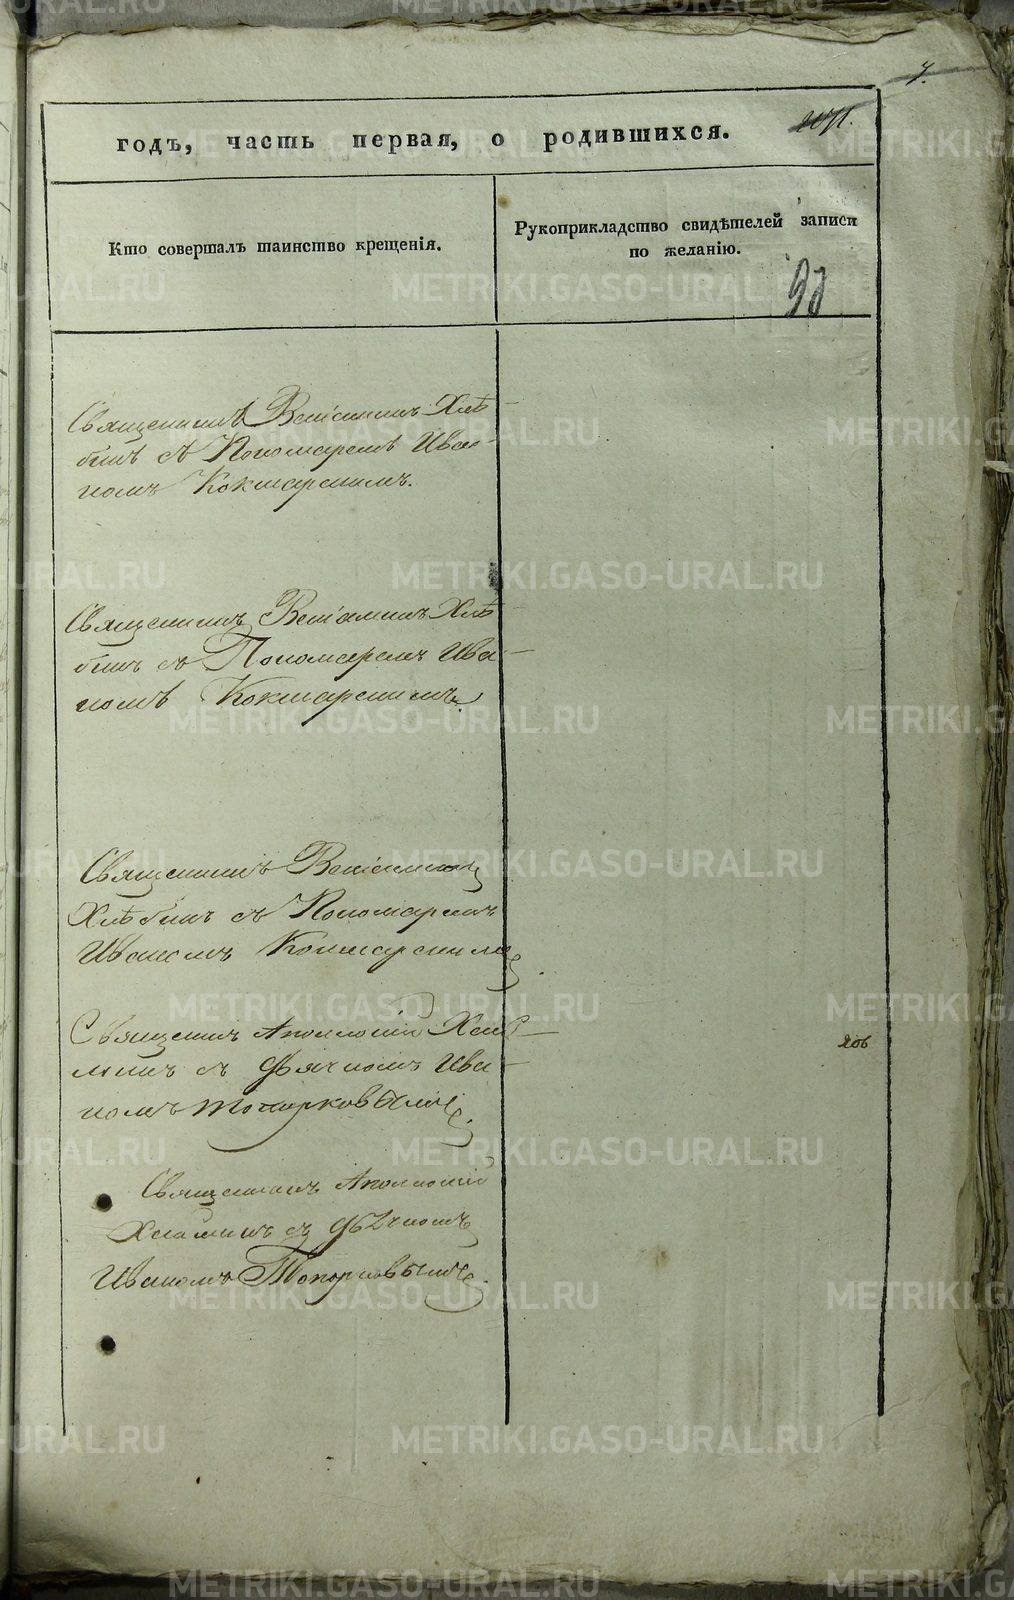 годъ, часть первая, о родившихся.
Кто совершалъ таинство крещенія.
Рукоприкладство свидѣтелей записи
по желанію.
Священникъ Веніаминъ Хлѣ-
бинъ съ Пономаремъ Ива-
номъ Кокшарскимъ.
Священникъ Веніаминъ Хлѣ-
бинъ съ Пономаремъ Ива-
номъ Кокшарскимъ.
Священникъ Веніаминъ
Хлѣбинъ съ Пономаремъ
Иваномъ Кокшарскимъ
Священникъ Аполлоній
съ Дьячкомъ Ива-
номъ Топорковымъ.
Священникъ Аполлоній
съ Дьячкомъ
Иваномъ Топорковымъ.
METRIKI.GASO-URAL.RU